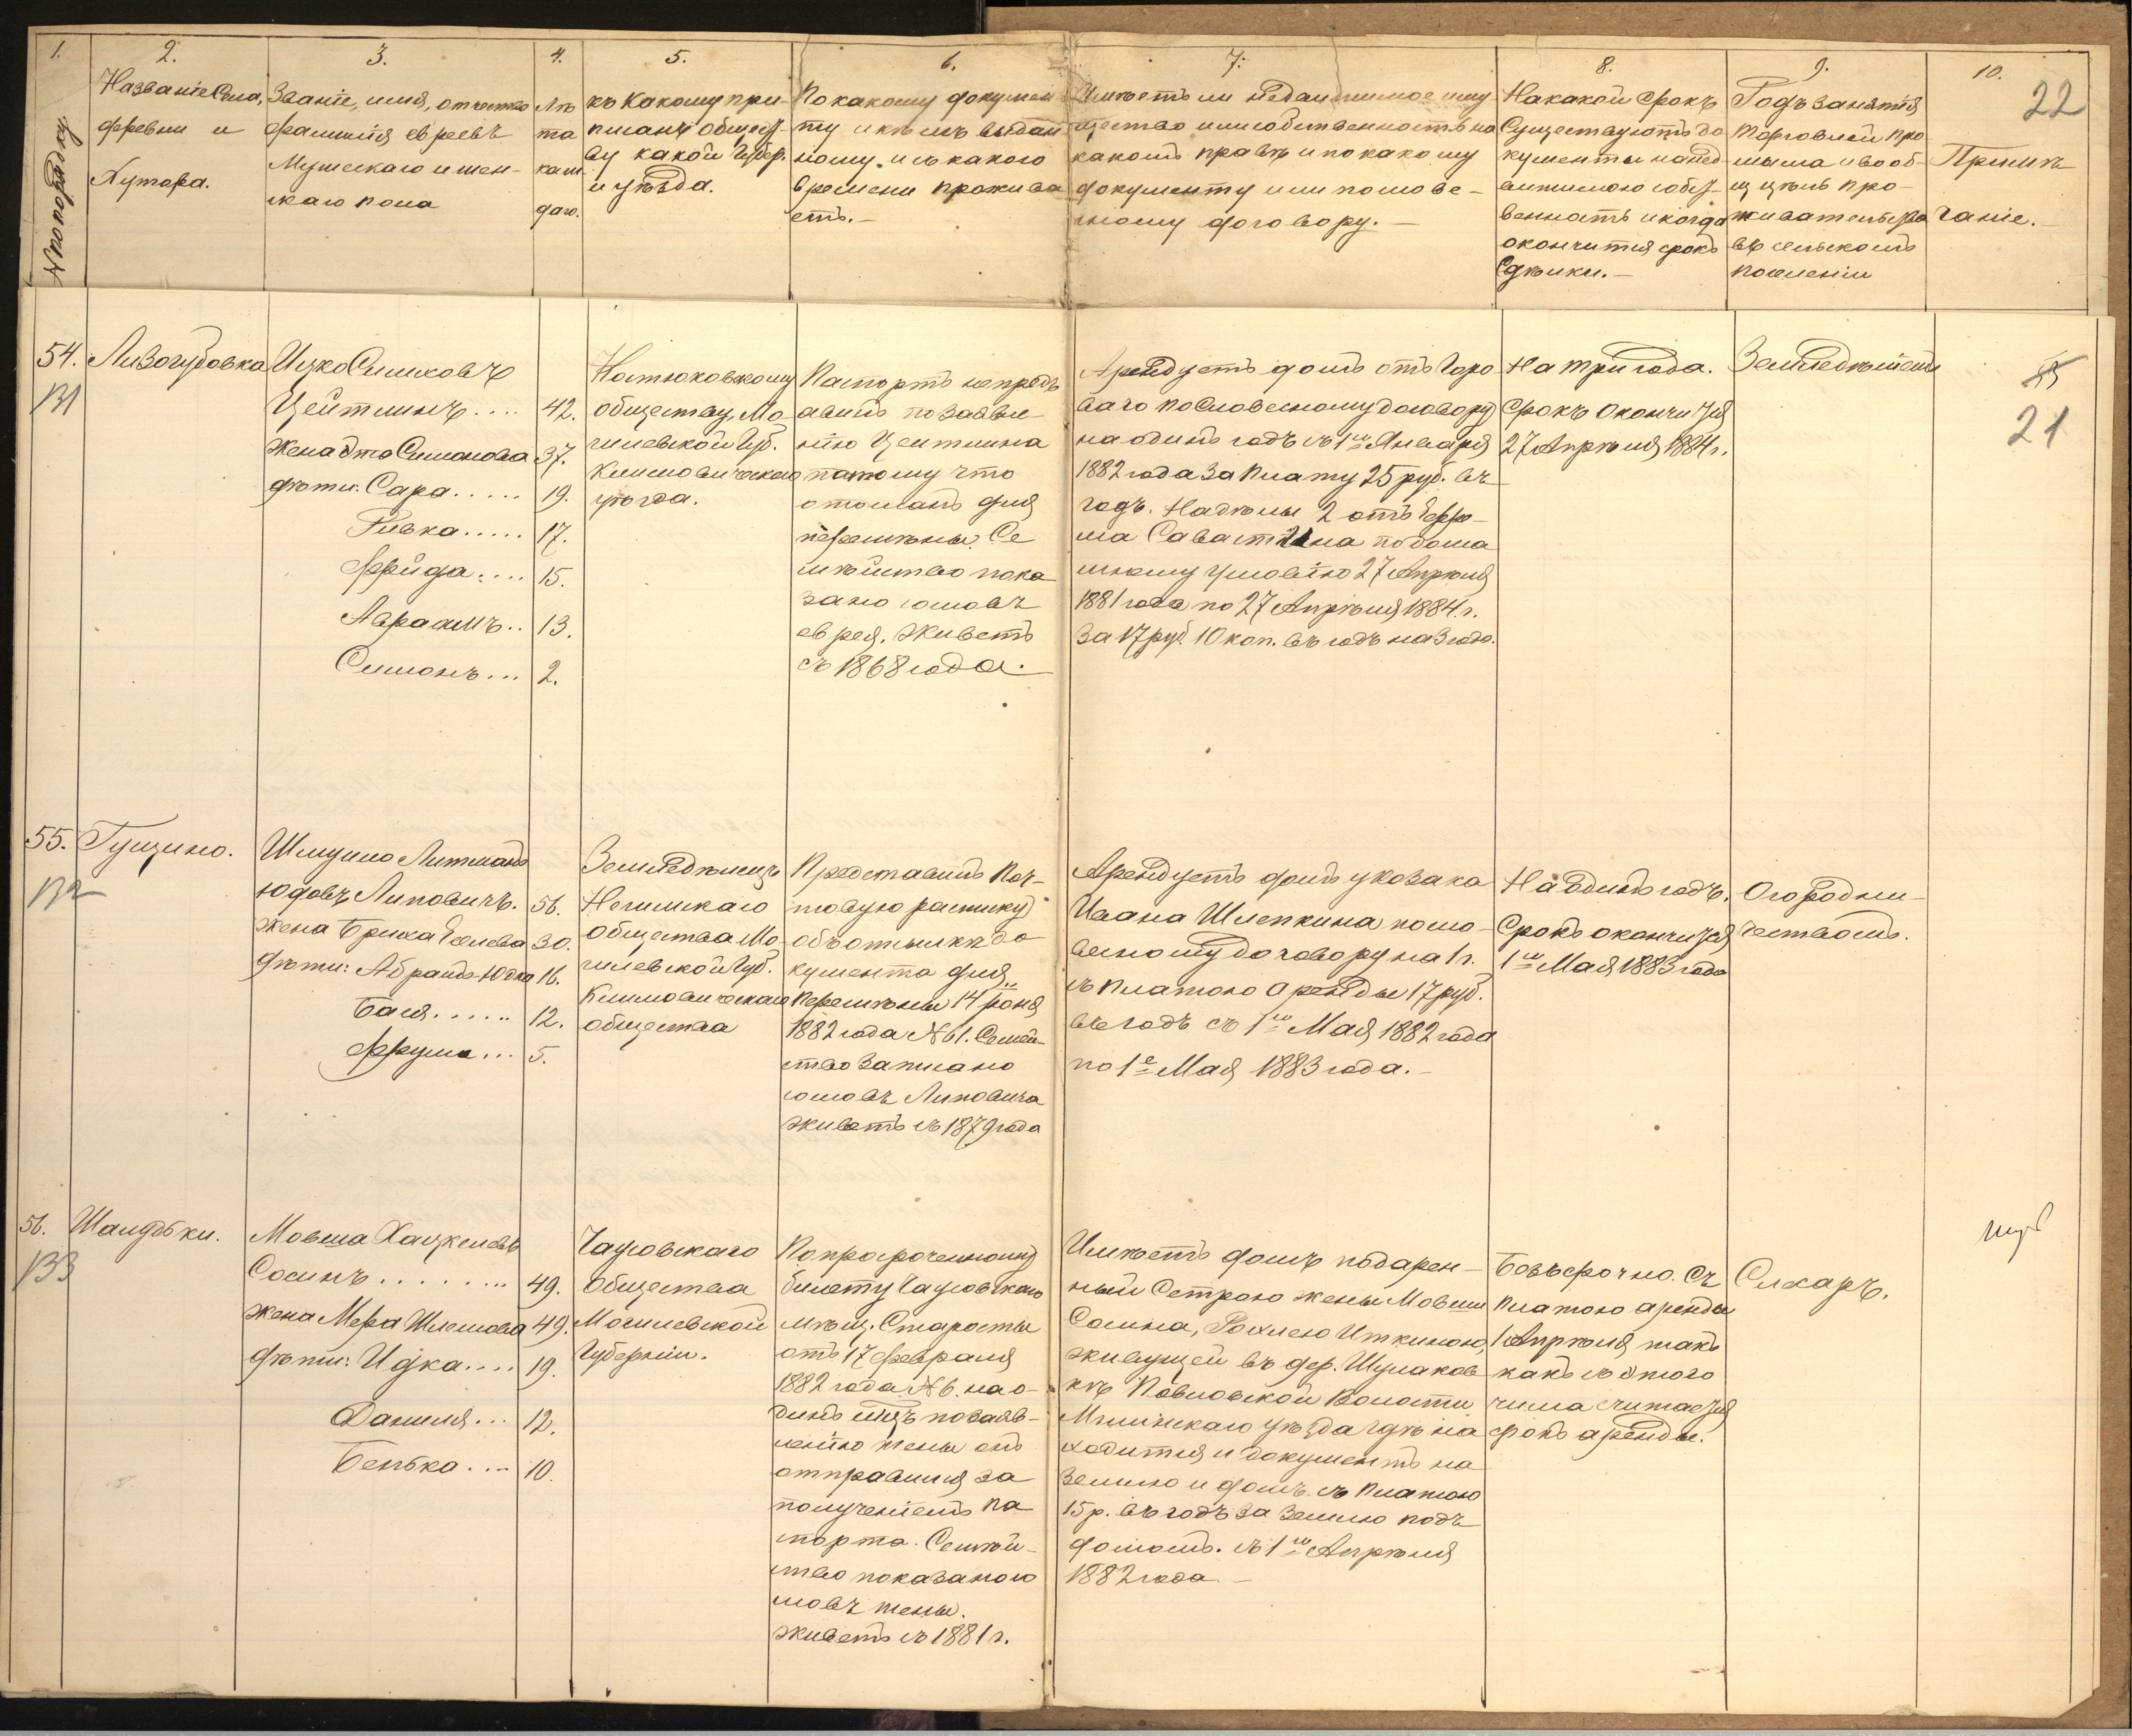 1.
2.
3.
4.
5.
6.
7.
8.
9.
10.
22
№ по порядку
Названіе Села,
деревни и
Хутора.
Званіе, имя, отчество
фамилія евреевъ
Мужескаго и жен-
скаго пола
Лѣ
та
каж.
даго.
къ Какому при-
писанъ общест-
ву какой Губер.
и уѣзда.
По какому докумен
ту и кѣмъ выдан
ному, и съ какого
времени прожива
етъ.-
Имѣетъ ли недвижимое иму
щество или собственность на
какомъ правѣ и по какому
документу или словес-
ному договору.-
На какой срокъ
Существуютъ до
кументы на нед-
вижимою собст-
венность и когда
окончится срокъ
Сдѣлки.-
Родъ занятія
торговлей про
мысла и вооб-
ще цѣль про-
живательства
въ сельскомъ
поселеніи
Примѣ
чаніе.
54.
131
Лизогубовка
Ицко Симховъ
Цейтлинъ.... 42.
Жена Эта Симонова 37.
дѣти: Сара..... 19.
Ривка..... 17.
Фрейда.... 15.
Авраамъ.. 13.
Симонъ... 2.
обществу, Мо
гилевской Губ.
Климовическаго
уѣзда.
Паспортъ непредъ
авилъ по заявле
нію Цейтлина
потому что
отосланъ для
перемѣны. Се
мѣйство пока
зано со словъ
еврея. Живетъ
съ 1868 года.-
Арендуетъ домъ отъ Горо
ваго по Словесному договору
на одинъ годъ съ 1го Января
1882 года За Плату 25 руб. въ
годъ. Надѣлы 2 отъ Ефро-
ма Саваст на по дома
шнему условію 27 Апрѣля
1881 года по 27 Апрѣля 1884 г.
За 17 руб. 10 коп. въ годъ на 3 года.
На три года.
Срокъ Окончится
27 Апрѣля 1884 г.
Земледѣліемъ
21
55.
132
Гущино.
Шмуило Литманъ
Юдовъ Липовичъ. 56.
Жена Бриха 30.
дѣти: Абрамъ-Юдка 16.
Бася...... 12.
Фрума... 5.
Земледѣлецъ
общества Мо
гилевской Губ.
Климовическаго
общества
Представилъ Поч-
товую расписку
объ отсылкѣ до
кумента для
Перемѣны 14 Іюня
1882 года № 61. Семей-
ство Записано
со словъ Липовича
живетъ съ 1879 года
Арендуетъ домъ у козака
Ивана Шлепкина по сло-
весному договору на 1 г.
съ платою Аренды 17 руб.
въ годъ съ 1го Мая 1882 года
по 1е Мая 1883 года.-
На Одинъ годъ.
Срокъ окончится
1го Мая 1883 года
Огородни-
чествомъ.
56.
133
Шаулоки.
Мовша Хацкелевъ
Сосинъ........ 49.
Жена Мера Шлемова 49.
дѣти: Идка.... 19.
Данила... 12.
Бенька.... 10.
Чаусовскаго
Общества
Могилевской
Губерніи.
По просроченному
билету Чаусовскаго
мѣщ. Старосты
отъ 17 февраля
1882 года № 6. на о-
динъ мѣс по заяв-
ленію жены онъ
отправился за
полученіемъ па
спорта. Семѣй-
ство показано со
словъ жены.
живетъ съ 1881 г.
Имѣетъ домъ подарен-
ный Сетрою жены Мовши
Сосина, Рохлею Иткиною,
живущей въ дер. Шулаков
кѣ Павловской Волости
Мглинскаго уѣзда гдѣ на
ходится и документъ на
Землю и домъ. съ Платою
15 р. въ годъ за Землю подъ
домомъ. съ 1го Апрѣля
1882 года.-
Безъсрочно. Съ
Платою аренды
1 Апрѣля такъ
какъ съ этого
числа считается
срокъ аренды.
Слесарь.